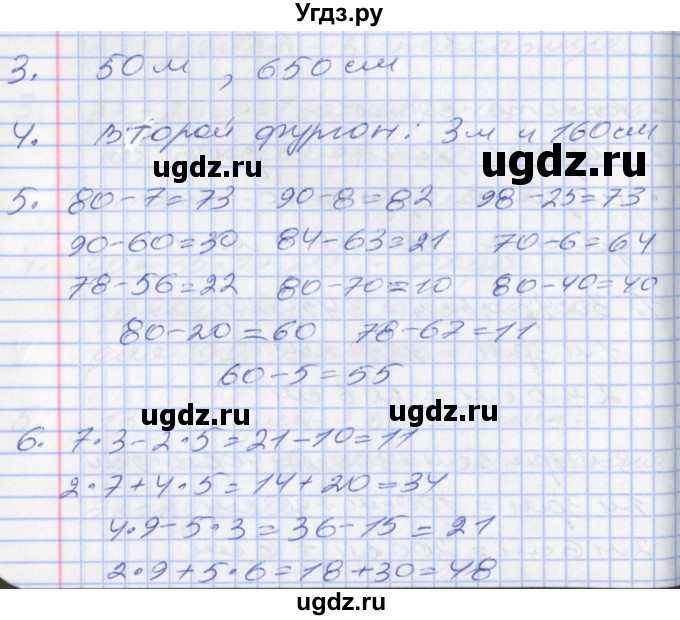 Угдз.ру
3. 50 м , 650 см
4. второй фургон: 3м и 160см
ugdz.ru ugdz.ru
5. 80-7=73 90-8=82 98-25=73
90-60=30 84-63=21 70-6=64
78-56=22 80-70=10 80-40=40
80-20=60 78-67=11
60-5=55
ugdz.ru ugdz.ru
6. 7·3-2·5=21-10=11
2·7+4·5=14+20=34
4·9-5·3=36-15=21
2·9+5·6=18+30=48
ugdz.ru